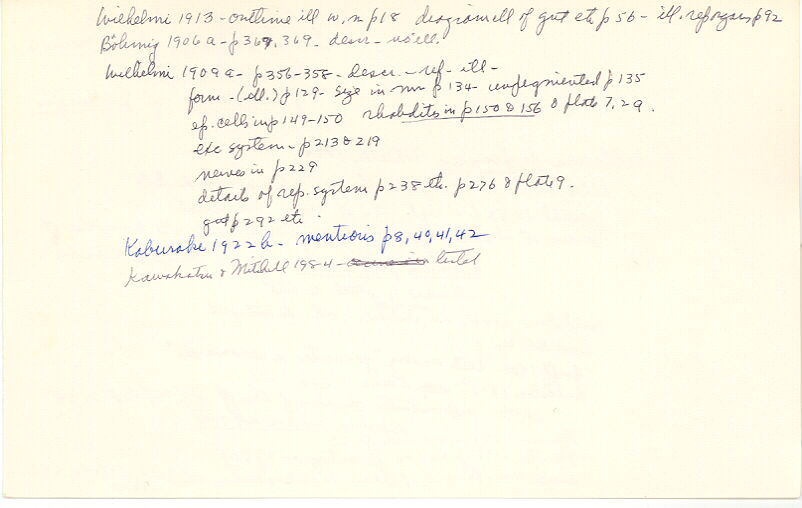 Wilhelmi 1913 - outline ill w.m p18 diagram ill of gut etc p 56 - ill. rep organs p92
Böhmig 1906a - p 369 - descr - no ill.
Wilhelmi 1909a - p356-358 - descr. - ref - ill -
form - (ill.) p 129 - size in mm p 134 - unsegmented p 135
ep. cells in p 149-150 rhabdites in p150 & 156 & plate 7, 29.
exc system - p 213 & 219
nerves in p 229
details of rep. system p 238 etc. p 276 & plate 9.
gut p 292 etc.
Kaburaki 1922b - mentions p8, 40, 41, 42
Kawakatsu & Mitchell 1984 - listed